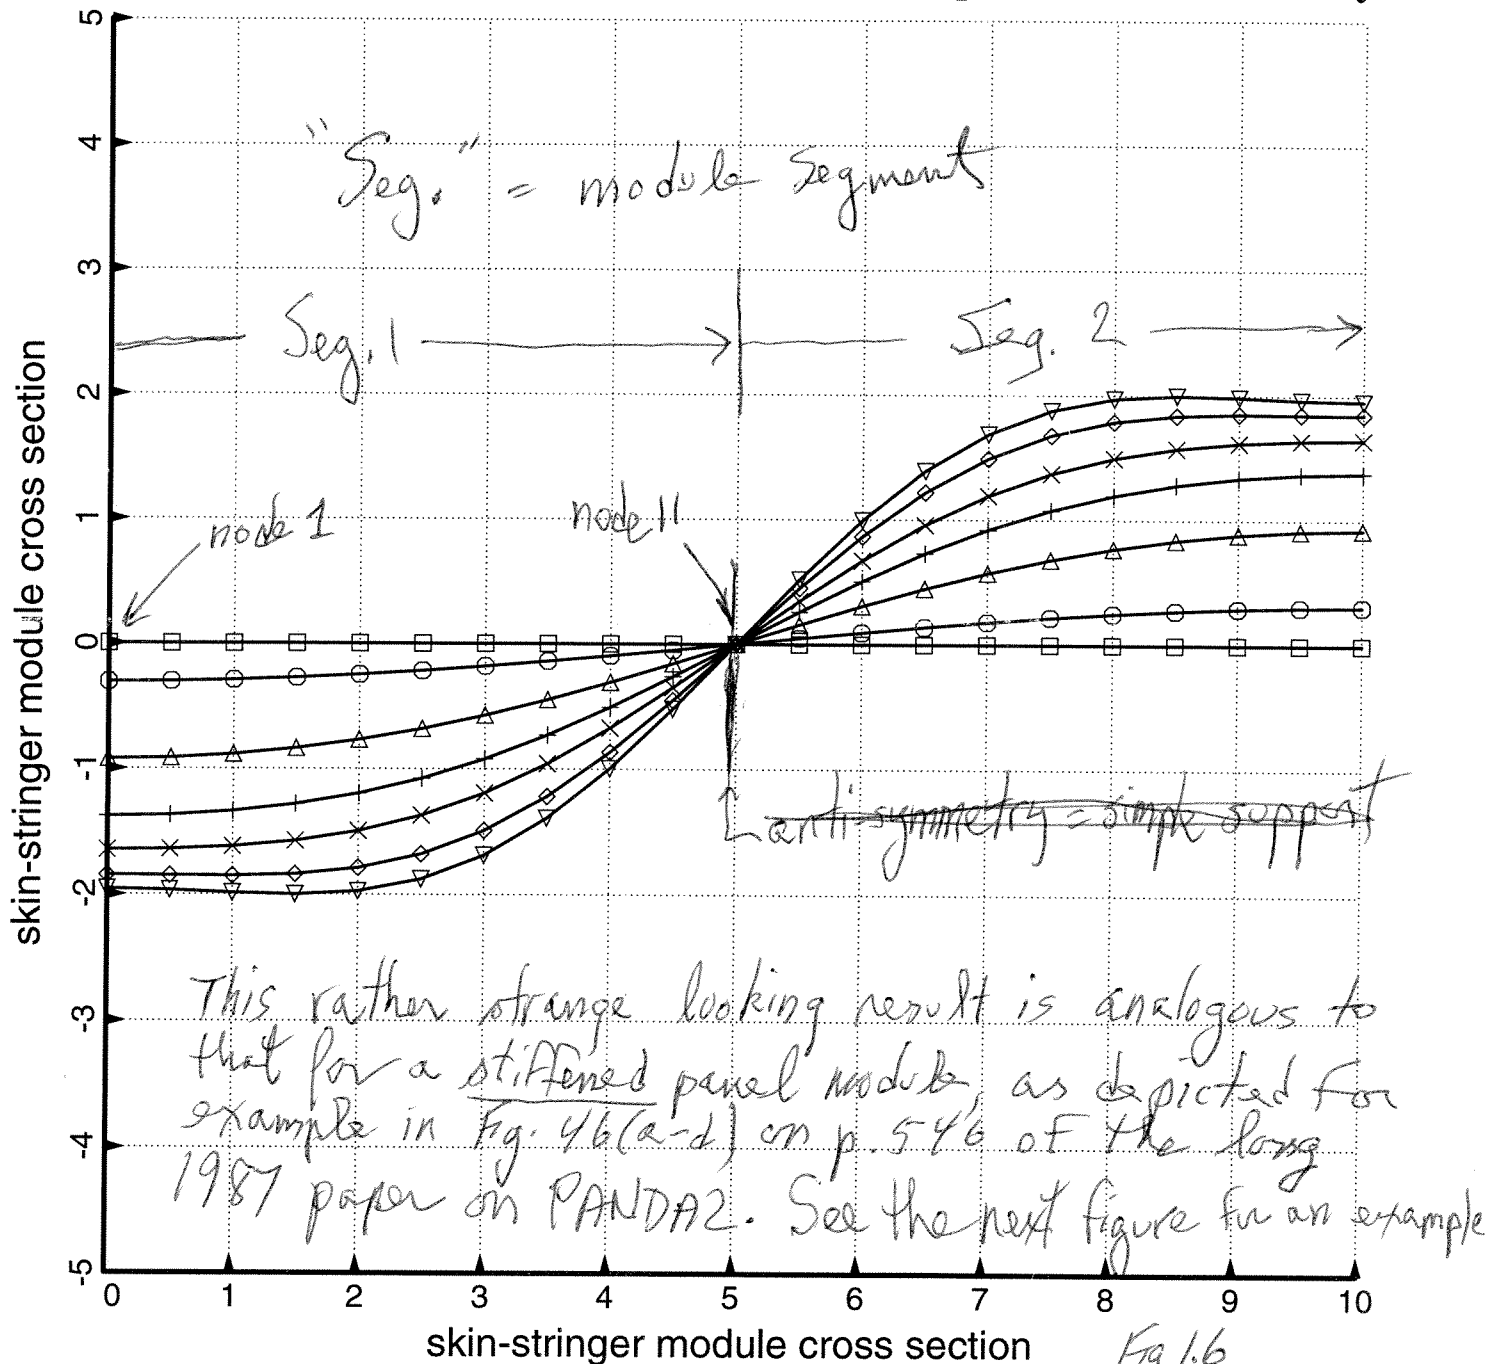 5
4
3
2
1
0
-1
-2
-3
-4
-5
skin-stringer module cross section
"Seg." = module segment
Seg. 1
Seg. 2
node 1
node 11
anti-symmetry = simple support
This rather strange looking result is analogous to
that for a stiffened panel module, as depicted for
example in Fig. 46(a-d) on p. 546 of the long
1987 paper on PANDA2. See the next figure for an example
0 1 2 3 4 5 6 7 8 9 10
skin-stringer module cross section
Fig 1.6